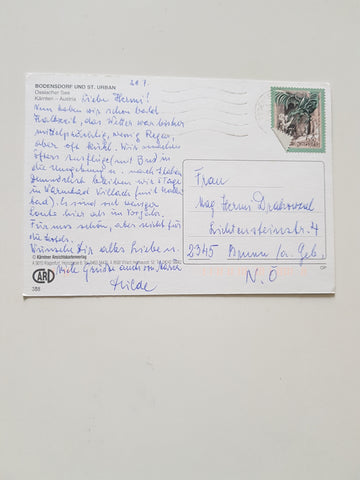 BODENSDORF UND ST. URBAN
Ossiacher See
Kärnten - Austria
20.7.
Liebe Hermi!
Nun haben wir schon bald
Halbzeit, das Wetter war bisher
mittelprächtig, wenig Regen,
aber oft kühl. Wir machen
öfters Ausflüge mit Bus in
die Umgebung u. nach
bleiben wir 1 Tage
in Warmbad Villach (mit
bad). Es sind viel weniger
Leute hier als im Vorjahr.
Für uns schön, aber nicht für
die
Wünsche Dir alles Liebe u.
viele Grüsse auch von
Hilde
© Kärntner Ansichtskartenverlag
CARD
388
Frau
Mag Hermi
Lichtensteinstr. 4
2345 Brunn /a. Geb.
N.Ö